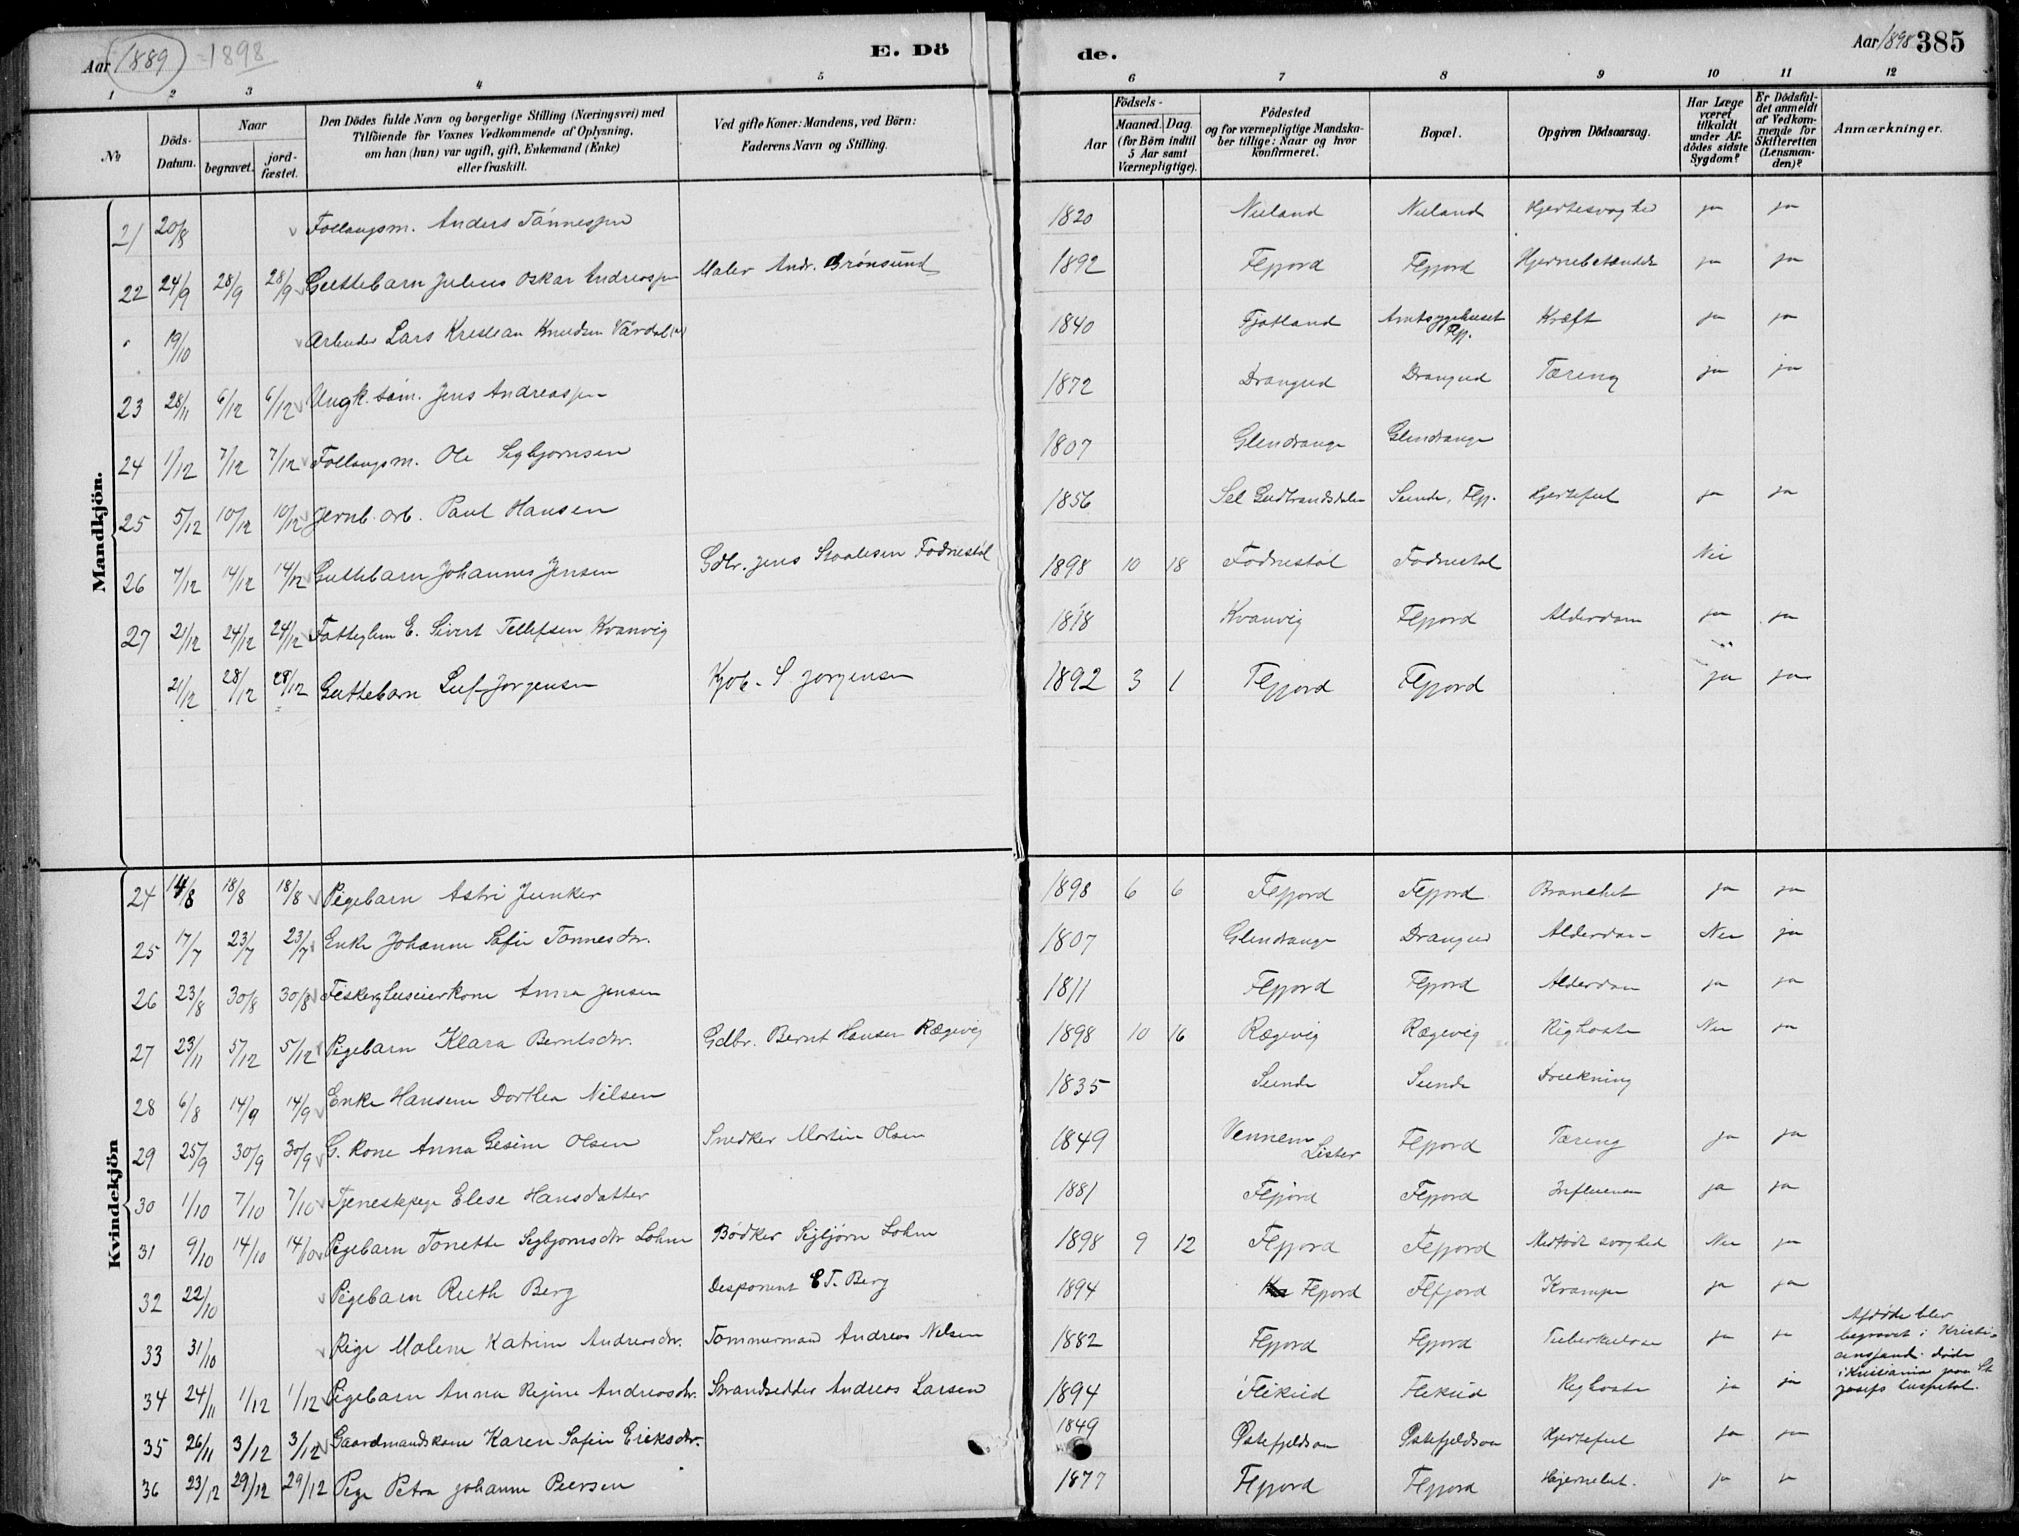 Aar 1889 1898 E. Dö
de. Aar 1898 385
1 2 3 4 5 6 7 8 9 10 11 12
No
Döds-Datum.
Naar
begravet.
jord-fæstet.
Den Dödes fulde Navn og borgerlige Stilling (Næringsvei) med
Tilföiende for Voxnes Vedkommende af Oplysning,
om han (hun) var ugift, gift, Enkemand (Enke)
eller fraskilt.
Ved gifte Koner: Mandens, ved Börn:
Faderens Navn og Stilling.
Födsels-
Aar
Maaned. Dag.
(for Börn indtil
5 Aar samt
Værnepligtige).
Födested
og for værnepligtige Mandska-
ber tillige: Naar og hvor
konfirmeret.
Bopæl.
Opgiven Dödsaarsag.
Har Læge
været
tilkaldt
under Af-
dödes sidste
Sygdom?
Er Dödsfal-
det anmeldt
af Vedkom-
mende for
Skifteretten
(Lensman-
den)?
Anmærkninger.
Mandkjön.
21 20/8 Follaugsm. Anders Tønnessen 1820 Nuland Nuland Hjertesvaghed ja ja
22 24/9 28/9 28/9 Guttebarn Julius Oskar Andreassen Maler Andr. Brönsund 1892 Flfjord Flfjord ja ja
19/10 Arbeider Lars Kristian Knudsen Vårdal 1840 Fjotland Kræft ja ja
23 28/11 6/12 6/12 Ungk. søm. Jens Andreassen 1872 Drangeid Drangeid Tæring ja ja
24 1/12 7/12 7/12 Follaugsm. Ole Sigbjørnsen 1807 Glendrange Glendrange
25 5/12 10/12 10/12 Jernb. arb. Paul Hansen 1856 Sel Gudbrandsdalen Sunde, Flfj. Hjertefeil ja ja
26 7/12 14/12 14/12 Guttebarn Johannes Jensen Gdbr. Jens Staalesen Fodnestøl 1898 10 18 Fodnestøl Fodnestøl Nei
27 21/12 24/12 24/12 Fattiglem E. Sivert Tellefsen Kvanvig 1818 Kvanvig Flfjord Alderdom ja ja
21/12 28/12 28/12 Guttebarn Leif Jørgensen Kjøb. S Jørgensen 1892 3 1 Flfjord Flfjord ja ja
Kvindekjön
24 14/8 18/8 18/8 Pigebarn Astri Junker 1898 6 6 Flfjord Flfjord Bronchit ja ja
25 17/7 23/7 23/7 Enke Johanne Sofie Tønnesdtr. 1807 Glendrange Drangeid Alderdom Nei ja
26 23/8 30/8 30/8 Fisker & huseierkone Anna Jensen 1811 Flfjord Flfjord Alderdom ja ja
27 23/11 5/12 5/12 Pigebarn Klara Berntsdtr. Gdbr. Bernt Hansen Rægevig 1898 10 16 Rægevig Rægevig Kighoste Nei ja
28 6/8 14/9 14/9 Enke Hansine Dorthea Nilsen 1835 Sunde Sunde Drukning
29 25/9 30/9 30/9 G. kone Anna Gesine Olsen Snedker Martin Olsen 1849 Vennem Lister Flfjord Tæring ja ja
30 1/10 7/10 7/10 Tjenestepige Elise Hansdatter 1881 Flfjord Flfjord Influenza ja ja
31 9/10 14/10 14/10 Pigebarn Tonette Sigbjørnsdtr Lohne Bødker Sigbjørn Lohne 1898 9 12 Flfjord Flfjord Medfødt svaghed Nei ja
32 22/10 Pigebarn Ruth Berg Disponent C T. Berg 1894 Flfjord Flfjord Krampe ja ja
33 31/10 Pige Malene Katrine Andreasdtr. Tømmermand Andreas Nilsen 1882 Flfjord Flfjord Tuberkulose ja ja
Afdøde blev
begravet i Kristi-
anssand. døde
i Kristiania paa St
Josefs hospital.
34 24/11 1/12 1/12 Pigebarn Anna Regine Andreasdtr. Strandsidder Andreas Larsen 1894 Flikeid Flikeid Kighoste ja ja
35 26/11 3/12 3/12 Gaardmandskone Karen Sofie Eriksdtr. 1849 Østefjeldsaa Østefjeldsaa Hjertefeil ja ja
36 23/12 29/12 29/12 Pige Petra Johanne Peersen 1877 Flfjord Flfjord Hjernebet. ja ja